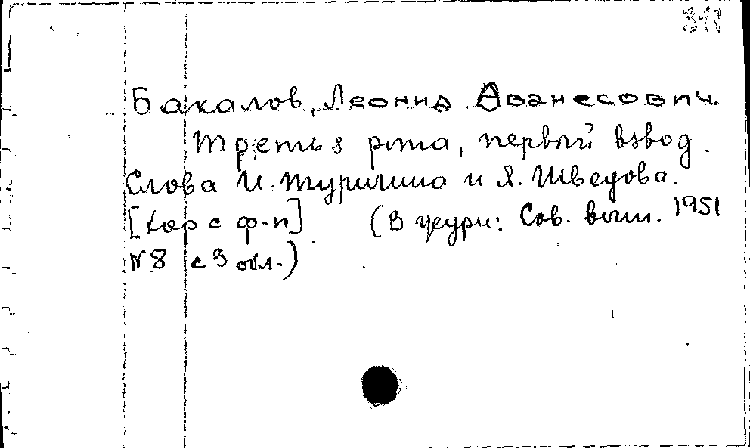 Бакалов, Леонид Аванесович.
Третья рота, первый взвод.
Слова И. Туричина и Я. Шведова.
[Хор с ф-п] (В журн: Сов. воин. 1951
№8 с 3 обл.)